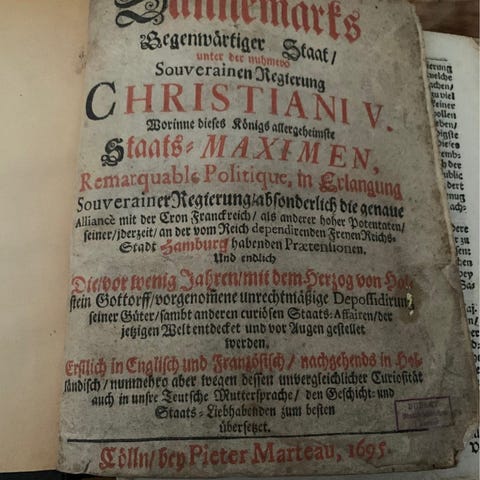 Dännemarks
Gegenwärtiger Staat/
unter der nuhmero
Souverainen Regierung
CHRISTIANI V.
Worinne dieses Königs allergeheimste
Staats-MAXIMEN,
Remarquable Politique, in Erlangung
Souverainer Regierung/absonderlich die genaue
Alliance mit der Cron Franckreich/ als anderer hoher Potentaten/
seiner/jderzeit/ an der vom Reich dependirenden Freyen Reichs-
Stadt Hamburg habenden Prætensionen.
Und endlich
Die/vor wenig Jahren/mit dem Herzog von Hol-
stein Gottorff/vorgenomene unrechtmäßige Depossidirung
seiner Güter/sambt anderen curiösen Staats-Affairen/der
jetzigen Welt entdecket und vor Augen gestellet
werden.
Erstlich in Englisch und Französisch/ nachgehends in Hol-
ländisch/ nunmehro aber wegen dessen unvergleichlicher Curiosität
auch in unsre Teutsche Muttersprache/ den Geschicht- und
Staats-Liebhabenden zum besten
übersetzet.
Cölln/ bey Pieter Marteau, 1695.